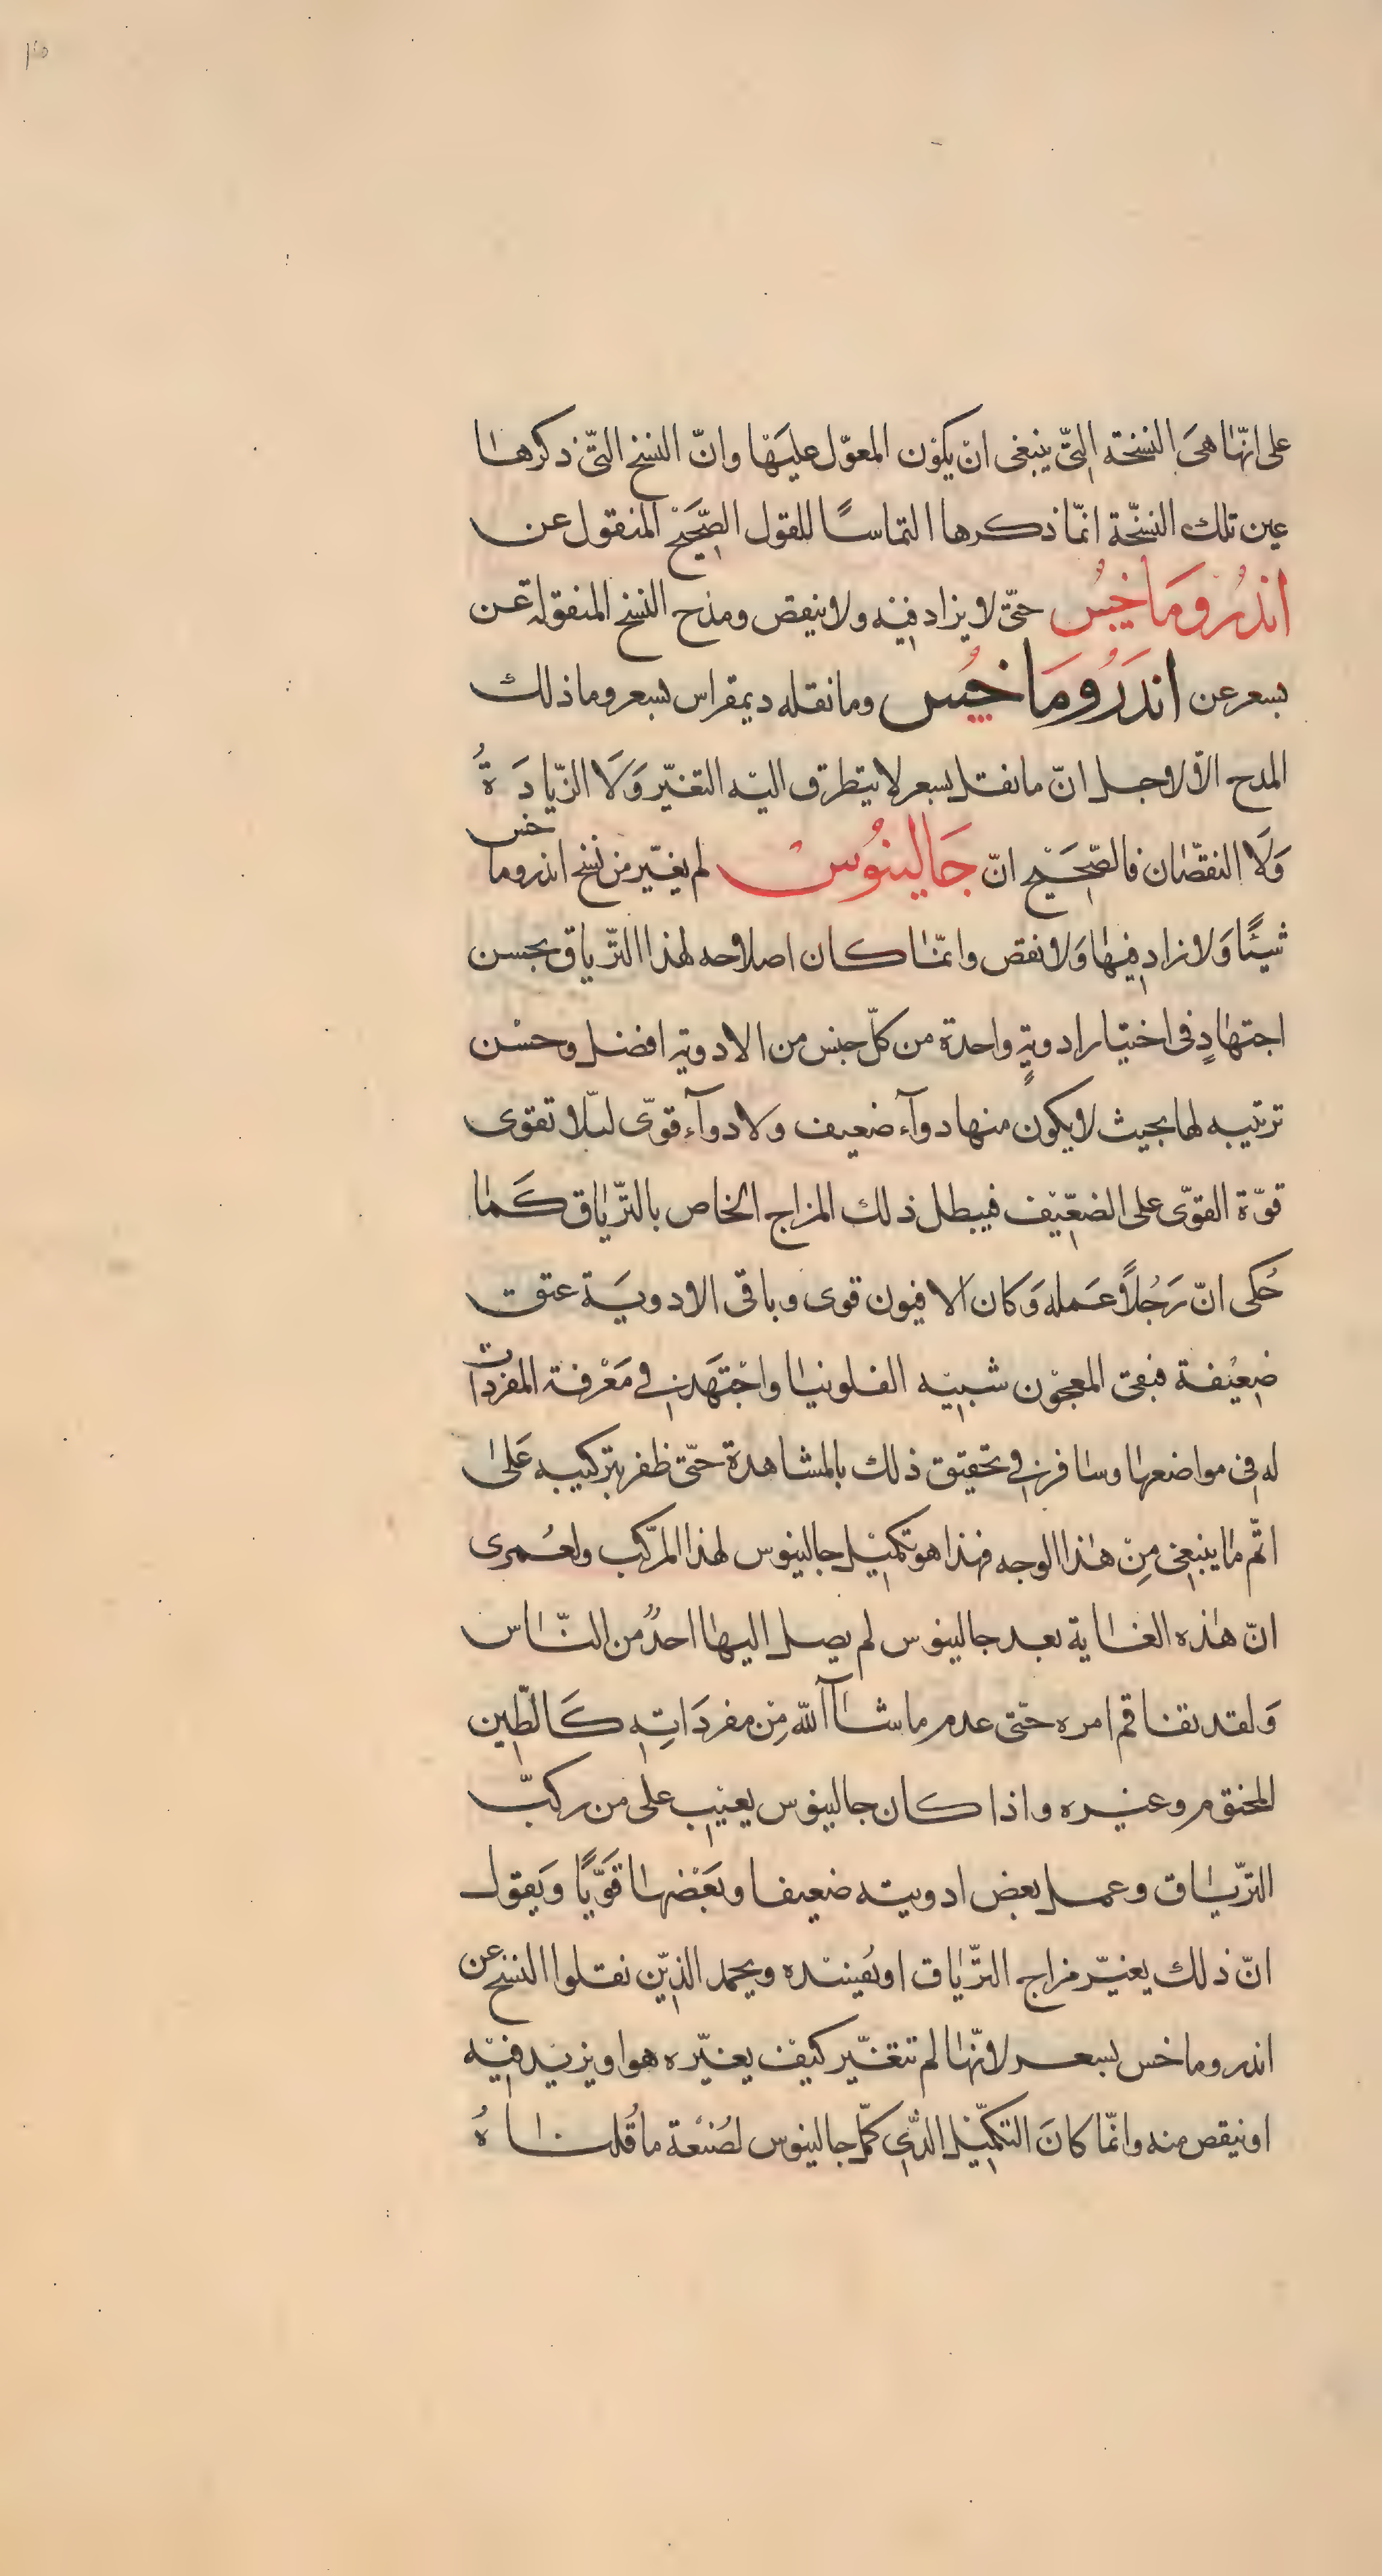 على انّها هىَ النسخة التىّ ينبغى ان يكوْن المعوّل عليَهْا وانّ النسخ التّى ذكرها
عين تلك النسّخة انمّا ذكرها التماسًا للقول الصّحَيْح المنقول عن
اندُرومَاخيسُ حتّى لا يزاد فيْه ولا ينقص ومدْح النسخ المنقوله عن
بسعر عن اندَرُومَاخيُس وما نقله ديمقراس بسعر وما ذلك
المدح الاّ لاوجل انّ ما نقل بسعر لا يتطرق اليْه التغيّر وَلَا الزّيادَةُ
وَلَا النقصّان فالصّحَيْح انّ جَالينُوسْ لم يغيّر من نسْخ اندروماخس
شيئًا وَلا زاد فيها وَلا نقص وانمّا كان اصلاحه لهذا الترّياق بحسن
اجتهادٍ فى اختيار ادويةٍ واحدة من كلّ جنس من الادوية افضل وحسْن
ترتيبه لها بحيث لا يكون منها دوآء ضعيف ولا دوآء قوّى ليلّا تقوى
قوّة القوّى على الضعّيْف فيبطل ذلك المزاج الخاص بالترّياق كَما
حُكى انّ رَجُلاً عَمله وَكان الافيون قوى وباقى الادويَة عتقت
ضعيْفة فبقى المعجوْن شبيْه الفلونيا واجْتهَد فى مَعْرفة المفردات
له فى مواضعها وسافر فى تحقيق ذلك بالمشاهدة حتّى ظفر بتركيبه عَلى
اتّم ما ينبغى مِنْ هذا الوجه فهذا هو تكميْل جالينوس لهذا المركّب ولعُمرى
انّ هذه الغاية بعد جالينوس لم يصل اليها احدٌ من النّاس
وَلقد تفاقم امره حتّى عدم ما شآ الله مِن مفردَاتِه كَالطّين
المختوم وغيره واذا كان جالينوس يعيْب على من ركبّ
الترّياق وعمل بعض ادويته ضعيفا وبَعْضها قَوّيًا وَيقول
انّ ذلك يغيّر مزاج الترّياق او يُفسْده ويحمد الذيّن نقلوا النسخ عن
اندروماخس بسعر لانّها لم تتغيّر كيْف يغيّره هو او يزيْد فيْه
او ينقص منه وانمّا كانَ التكميْل الذّى كمّل جالينوس لصُنعْة ما قُلناهُ